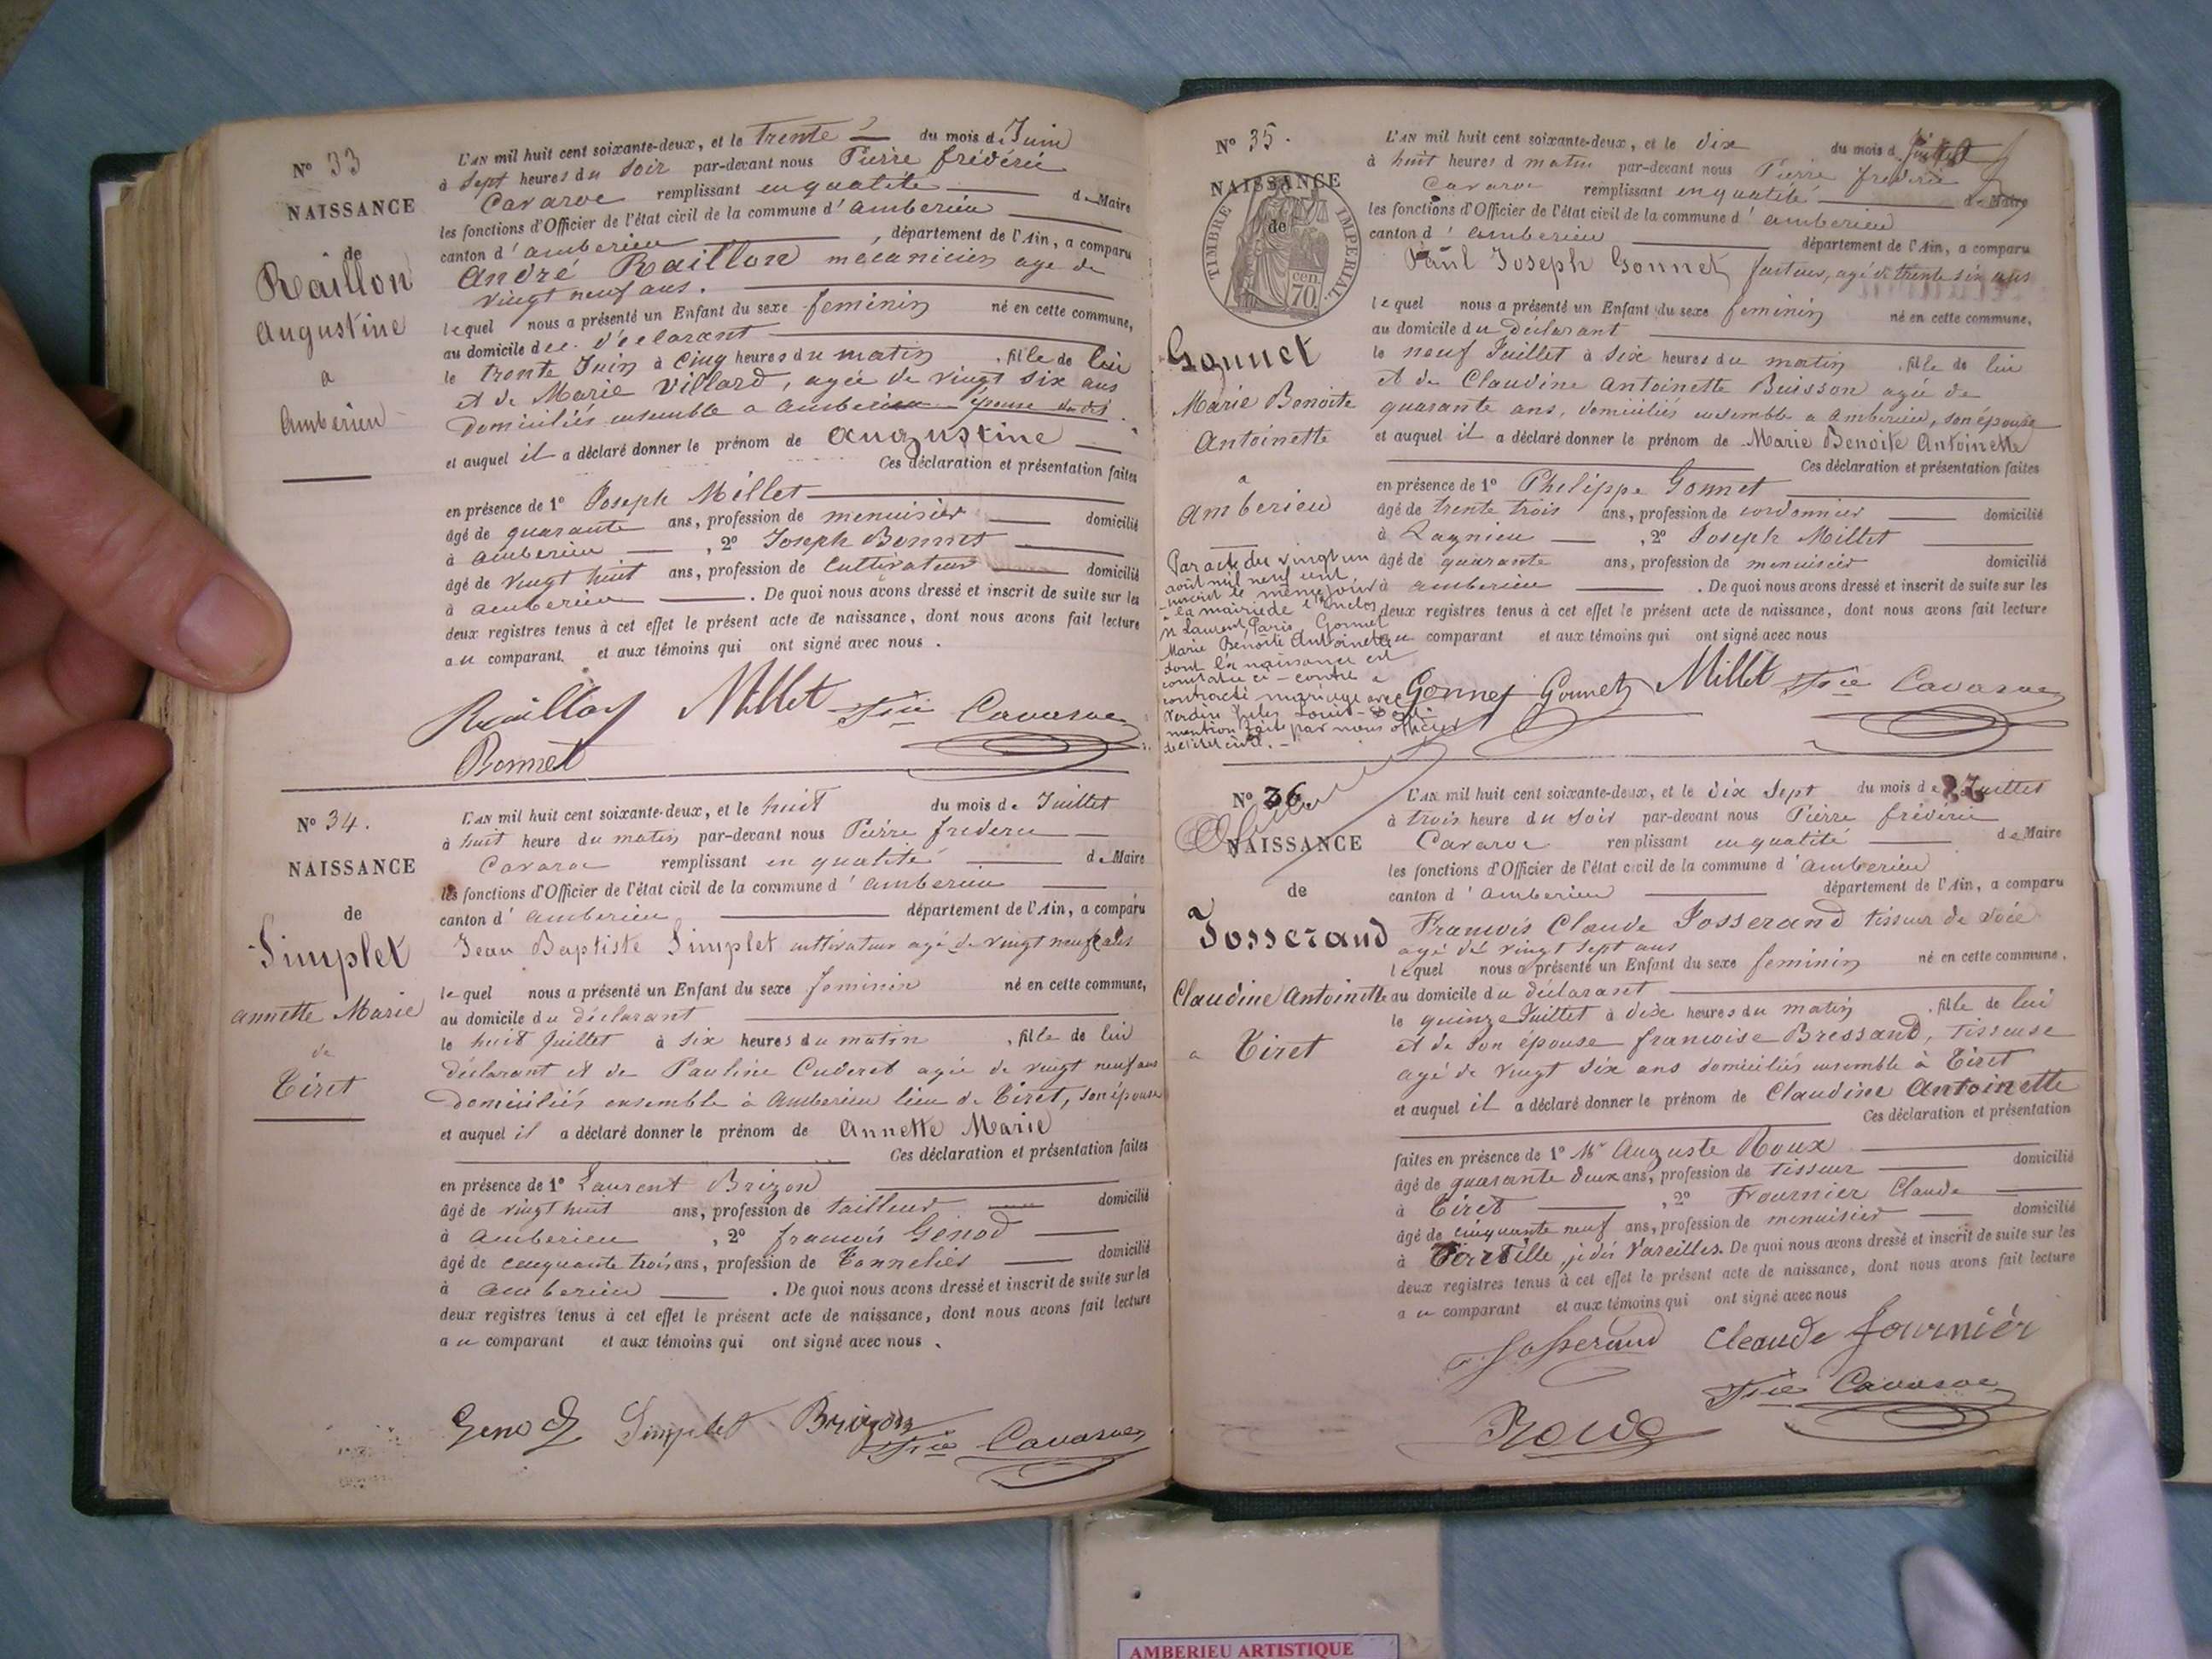 N° 33
NAISSANCE
de
Raillon
Augustine
a
Amberieu
L'AN mil huit cent soixante-deux, et le trente du mois de Juin
à sept heures du soir par-devant nous Pierre frédéric
Cavaroc remplissant en qualité de Maire
les fonctions d'Officier de l'état civil de la commune d'amberieu
canton d'amberieu, département de l'Ain, a comparu
André Raillon mecanicien age de
vingt neuf ans.
lequel nous a présenté un Enfant du sexe feminin né en cette commune,
au domicile de déclarant
le trente Juin à cinq heures du matin, fille de lui
et de Marie Villard, agée de vingt six ans
domiciliés ensemble a amberieu épouse
et auquel il a déclaré donner le prénom de augustine
Ces déclaration et présentation faites
en présence de 1° Joseph Millet
âgé de quarante ans, profession de menuisier domicilié
à amberieu, 2° Joseph Bonnet
âgé de vingt huit ans, profession de cultivateur domicilié
à amberieu. De quoi nous avons dressé et inscrit de suite sur les
deux registres tenus à cet effet le présent acte de naissance, dont nous avons fait lecture
au comparant et aux témoins qui ont signé avec nous.
Raillon Millet fric Cavaroc
Bonnet
N° 34.
NAISSANCE
de
Simplet
annette Marie
de
Tiret
L'AN mil huit cent soixante-deux, et le huit du mois de Juillet
à huit heure du matin par-devant nous Pierre frederic
Cavaroc remplissant en qualité de Maire
les fonctions d'Officier de l'état civil de la commune d'amberieu
canton d'amberieu, département de l'Ain, a comparu
Jean Baptiste Simplet cultivateur agé de vingt neuf ans
lequel nous a présenté un Enfant du sexe feminin né en cette commune,
au domicile du déclarant
le huit Juillet à six heures du matin, fille de lui
déclarant et de Pauline Cuderet agée de vingt neuf ans
domiciliés ensemble à amberieu lieu de Tiret, son épouse
et auquel il a déclaré donner le prénom de Annette Marie
Ces déclaration et présentation faites
en présence de 1° Laurent Brizon
âgé de vingt huit ans, profession de tailleur domicilié
à amberieu, 2° francois Genod
âgé de cinquante trois ans, profession de Tonnelier domicilié
à amberieu. De quoi nous avons dressé et inscrit de suite sur les
deux registres tenus à cet effet le présent acte de naissance, dont nous avons fait lecture
au comparant et aux témoins qui ont signé avec nous.
Genod Simplet Brizon fric Cavaroc
N° 35.
NAISSANCE
de
TIMBRE IMPERIAL
70 cen
Gonnet
Marie Benoite
Antoinette
a
amberieu
Par acte du vingt un
août mil neuf cent
inscrit le même jour à
la mairie de l'Enclos
St Laurent, Paris, Gonnet
Marie Benoite Antoinette
dont la naissance est
constatée ci-contre a
contracté mariage avec
Verdin Jules Louis
mention faite par nous officier
de l'état civil.
L'AN mil huit cent soixante-deux, et le dix du mois de Juillet
à huit heures d matin par-devant nous Pierre frederic
Cavaroc remplissant en qualité de Maire
les fonctions d'Officier de l'état civil de la commune d'amberieu
canton d'amberieu département de l'Ain, a comparu
Paul Joseph Gonnet facteur, agé de trente six ans
lequel nous a présenté un Enfant du sexe feminin né en cette commune,
au domicile du déclarant
le neuf Juillet à six heures du matin, fille de lui
et de Claudine antoinette Buisson agée de
quarante ans, domiciliés ensemble a amberieu, son épouse
et auquel il a déclaré donner le prénom de Marie Benoite Antoinette
Ces déclaration et présentation faites
en présence de 1° Philippe Gonnet
âgé de trente trois ans, profession de cordonnier domicilié
à Lagnieu, 2° Joseph Millet
âgé de quarante ans, profession de menuisier domicilié
à amberieu. De quoi nous avons dressé et inscrit de suite sur les
deux registres tenus à cet effet le présent acte de naissance, dont nous avons fait lecture
au comparant et aux témoins qui ont signé avec nous
Gonnet Gonnet Millet fric Cavaroc
N° 36
NAISSANCE
de
Josserand
Claudine Antoinette
a Tiret
L'AN mil huit cent soixante-deux, et le dix sept du mois de Juillet
à trois heure du soir par-devant nous Pierre frédéric
Cavaroc remplissant en qualité de Maire
les fonctions d'Officier de l'état civil de la commune d'amberieu
canton d'amberieu département de l'Ain, a comparu
Francois Claude Josserand tisseur de soie
agé de vingt sept ans
lequel nous a présenté un Enfant du sexe feminin né en cette commune,
au domicile du déclarant
le quinze Juillet à dix heures du matin, fille de lui
et de son épouse francoise Bressand, tisseuse
agé de vingt six ans domiciliés ensemble à Tiret
et auquel il a déclaré donner le prénom de Claudine Antoinette
Ces déclaration et présentation
faites en présence de 1° Mr Auguste Roux
âgé de quarante deux ans, profession de tisseur domicilié
à Tiret, 2° Fournier Claude
âgé de cinquante neuf ans, profession de menuisier domicilié
à Vareilles. De quoi nous avons dressé et inscrit de suite sur les
deux registres tenus à cet effet le présent acte de naissance, dont nous avons fait lecture
au comparant et aux témoins qui ont signé avec nous
Josserand Cleaude fournier
fric Cavaroc
Roux
AMBERIEU ARTISTIQUE